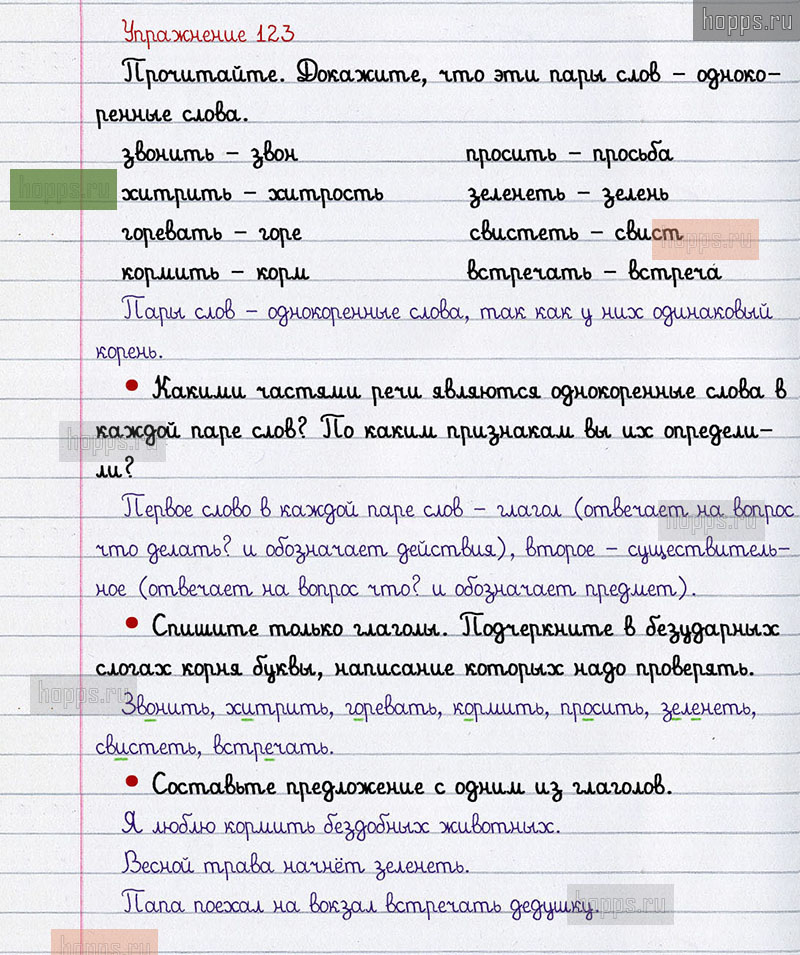 hopps.ru
Упражнение 123
Прочитайте. Докажите, что эти пары слов – одноко-
ренные слова.
звонить – звон просить – просьба
hopps.ru
хитрить – хитрость зеленеть – зелень
горевать – горе свистеть – свист
hopps.ru
кормить – корм встречать – встреча
Пары слов – однокоренные слова, так как у них одинаковый
корень.
• Какими частями речи являются однокоренные слова в
каждой паре слов? По каким признакам вы их определи-
hopps.ru
ли?
Первое слово в каждой паре слов – глагол (отвечает на вопрос
hopps.ru
что делать? и обозначает действия), второе – существитель-
ное (отвечает на вопрос что? и обозначает предмет).
• Спишите только глаголы. Подчеркните в безударных
слогах корня буквы, написание которых надо проверять.
hopps.ru
Звонить, хитрить, горевать, кормить, просить, зеленеть,
свистеть, встречать.
• Составьте предложение с одним из глаголов.
Я люблю кормить бездобных животных.
Весной трава начнёт зеленеть.
Папа поехал на вокзал встречать дедушку.
hopps.ru
hopps.ru